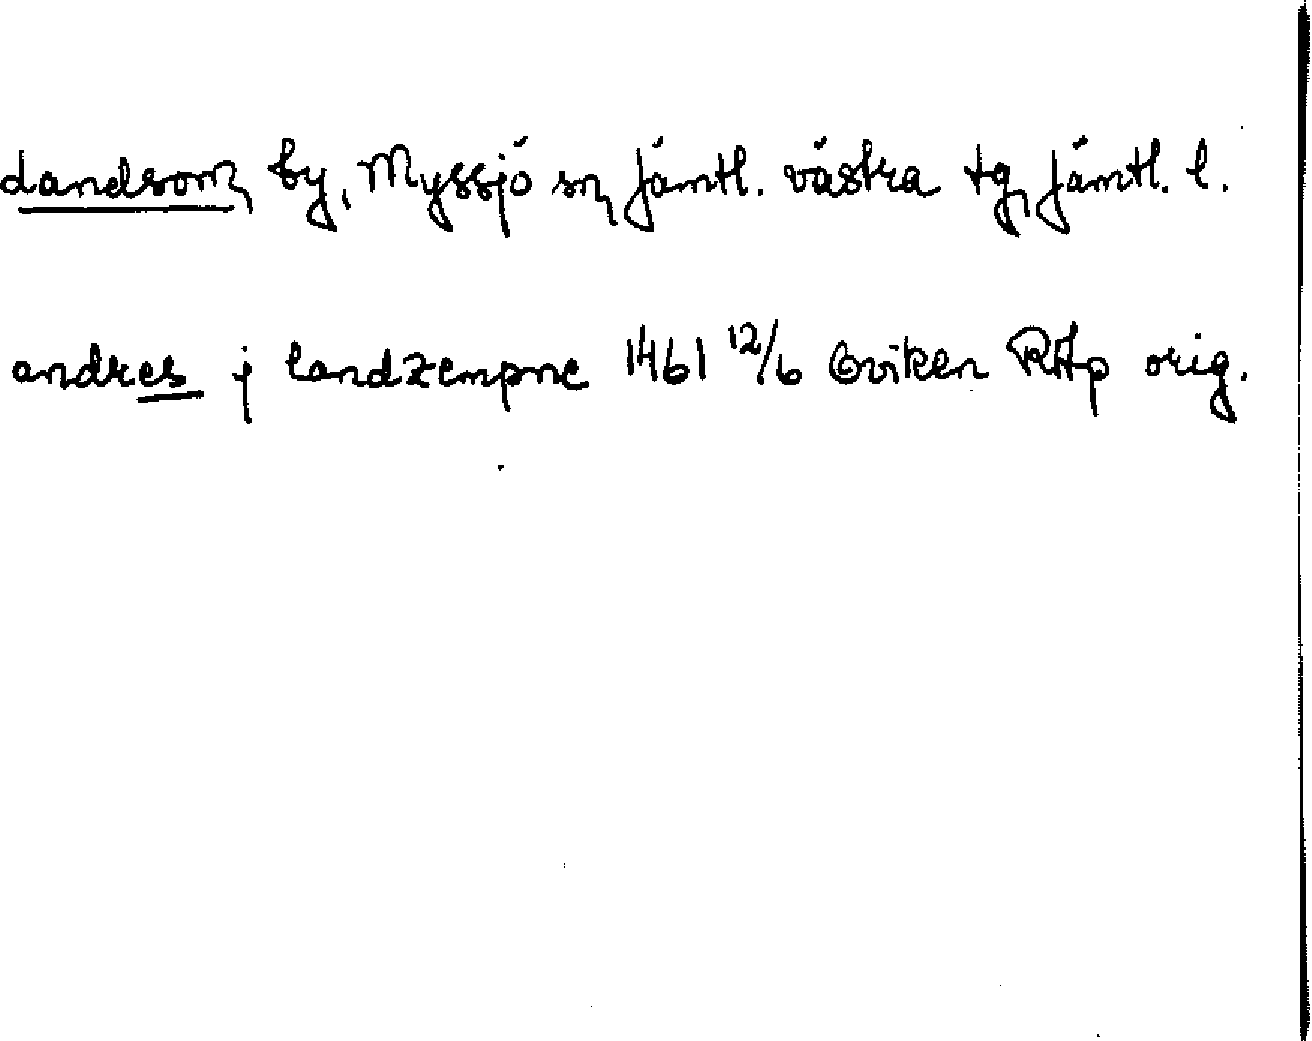 dandsom, by, Myssjö sn, Jämtl. västra tg, Jämtl. l.
andres j landzempne 1461 12/6 Oviken RAp orig.